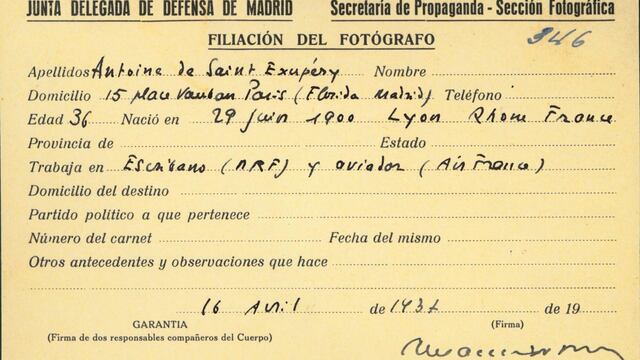 JUNTA DELEGADA DE DEFENSA DE MADRID Secretaría de Propaganda - Sección Fotográfica
FILIACIÓN DEL FOTÓGRAFO 346
Apellidos Antoine de Saint Exupéry Nombre
Domicilio 15 place Vauban Paris (Florida Madrid) Teléfono
Edad 36 Nació en 29 juin 1900 Lyon Rhone France
Provincia de Estado
Trabaja en Escribano (NRF) y aviador (Air France)
Domicilio del destino
Partido político a que pertenece
Número del carnet Fecha del mismo
Otros antecedentes y observaciones que hace
16 Avril de 1937 de 19
GARANTIA (Firma)
(Firma de dos responsables compañeros del Cuerpo)